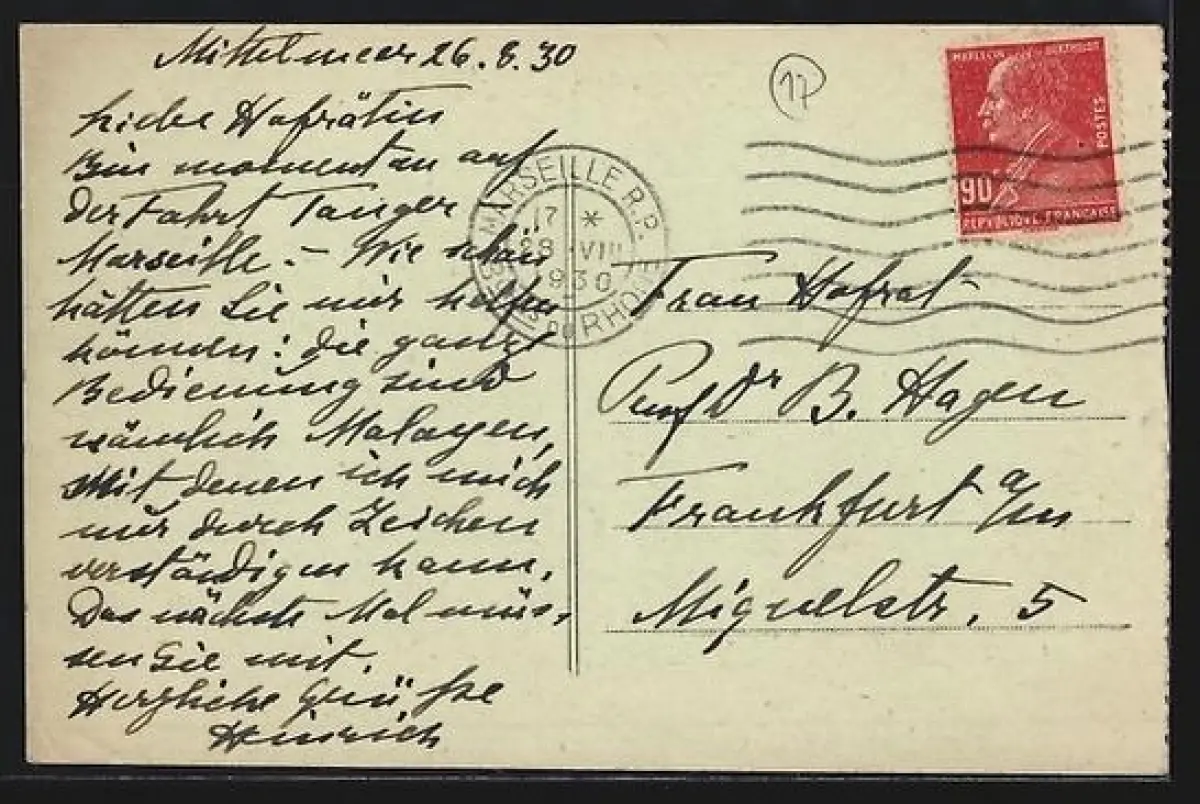 Mittelmeer 26.8.30
Liebe Hofrätin
Bin momentan auf
der Fahrt Tanger
Marseille. – Wie schön
hätten Sie mir helfen
können: die ganze
Bedienung sind
nämlich Malayen,
Mit denen ich mich
nur durch Zeichen
verständigen kann.
Das nächste Mal müs-
sen Sie mit.
Herzliche Grüße
Heinrich
17
MARCELIN BERTHELOT
POSTES
90
REPUBLIQUE FRANÇAISE
MARSEILLE R.P.
17 *
28 VIII
1930
DU RHONE
Frau Hofrat
Prof Dr B. Hagen
Frankfurt a/m
Miquelstr. 5